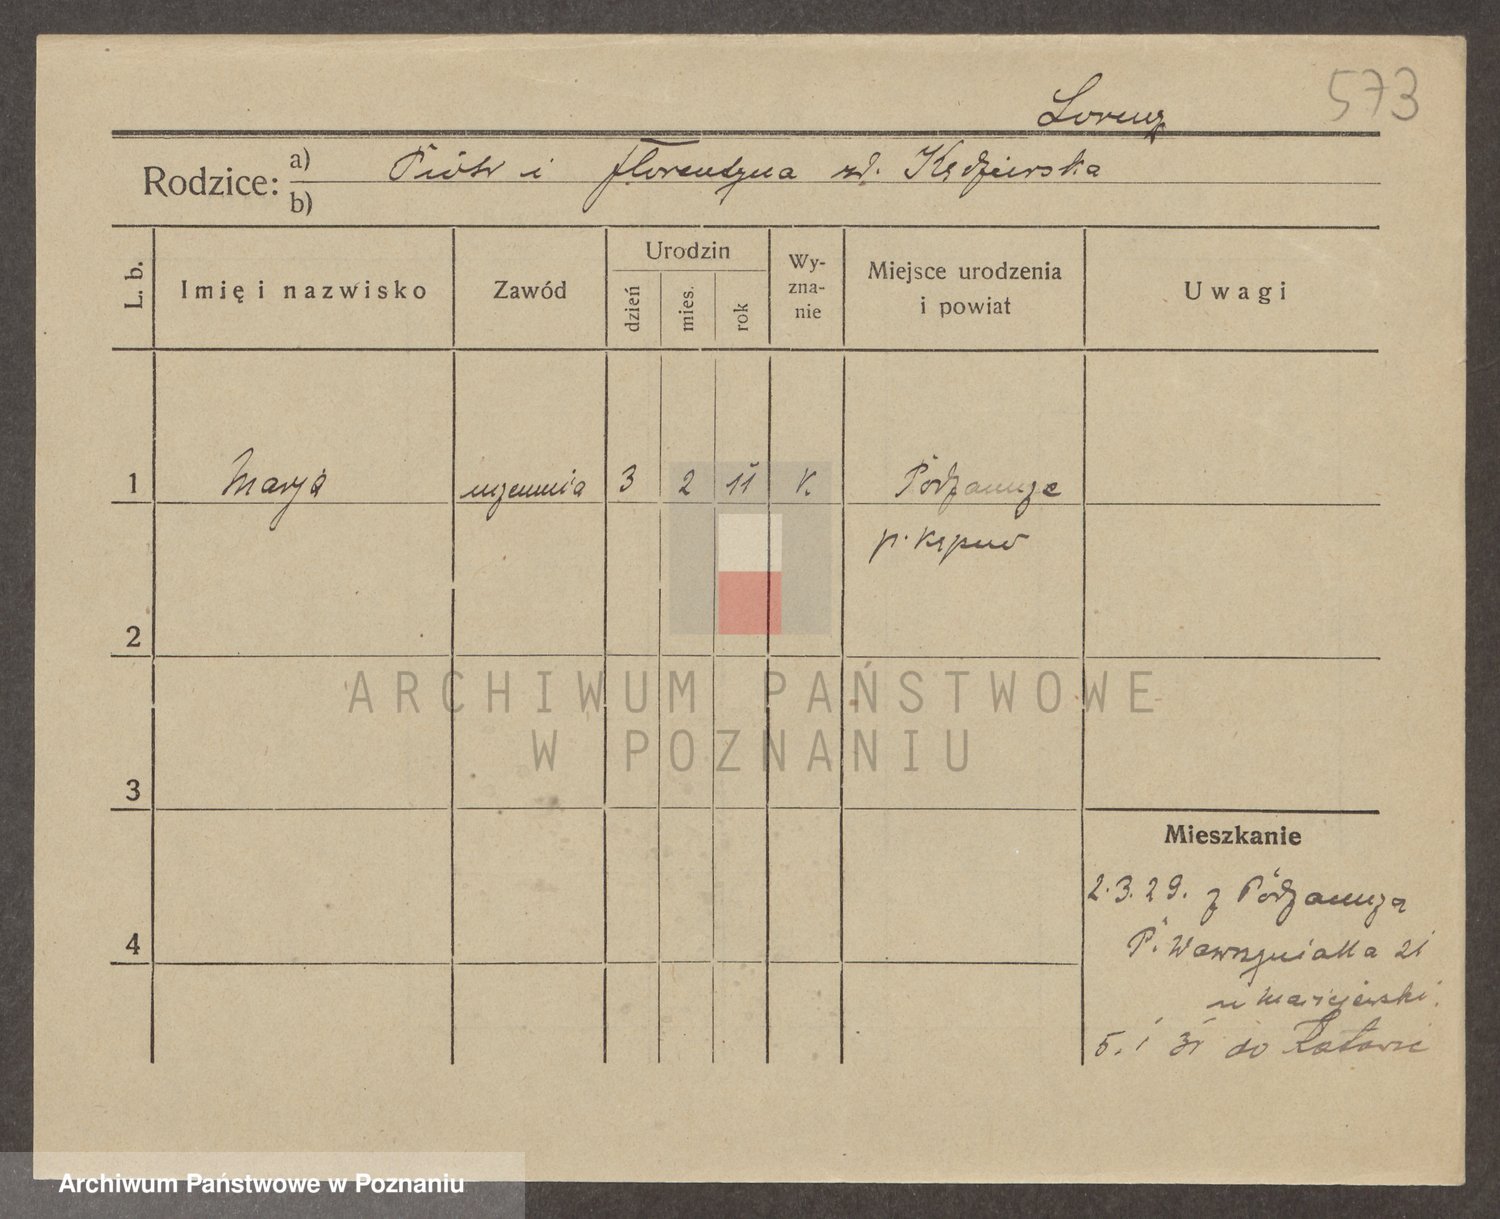 573
Lorenz
Rodzice: a) Piotr i Florentyna zd. Kędzierska
b)
L. b.
Imię i nazwisko
Zawód
Urodzin
dzień
mies.
rok
Wy-
zna-
nie
Miejsce urodzenia
i powiat
Uwagi
1 Marja uczennica 3 2 11 k. Podzamcze
p. Kępno
2
3
4
ARCHIWUM PAŃSTWOWE
W POZNANIU
Mieszkanie
2.3.29. z Podzamcza
P. Wawrzyniaka 21
u Maciejewski.
5. 1 31 do Katowic
Archiwum Państwowe w Poznaniu